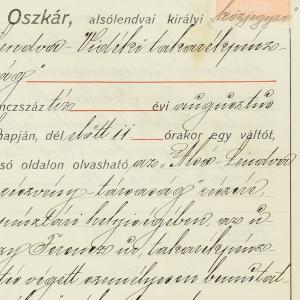 Oszkár, alsólendvai királyi közjegyző
lendva-Vidéki takarékpénz
ság"
nczszáz tiz évi augusztus
napján, dél előtt 11 órakor egy váltót,
só oldalon olvasható az "Alsó-Lendva
részvény-társaság" részére
pénztári helyiségében, az ú
Ferencz úr, takarékpénz
végett személyesen bemutat